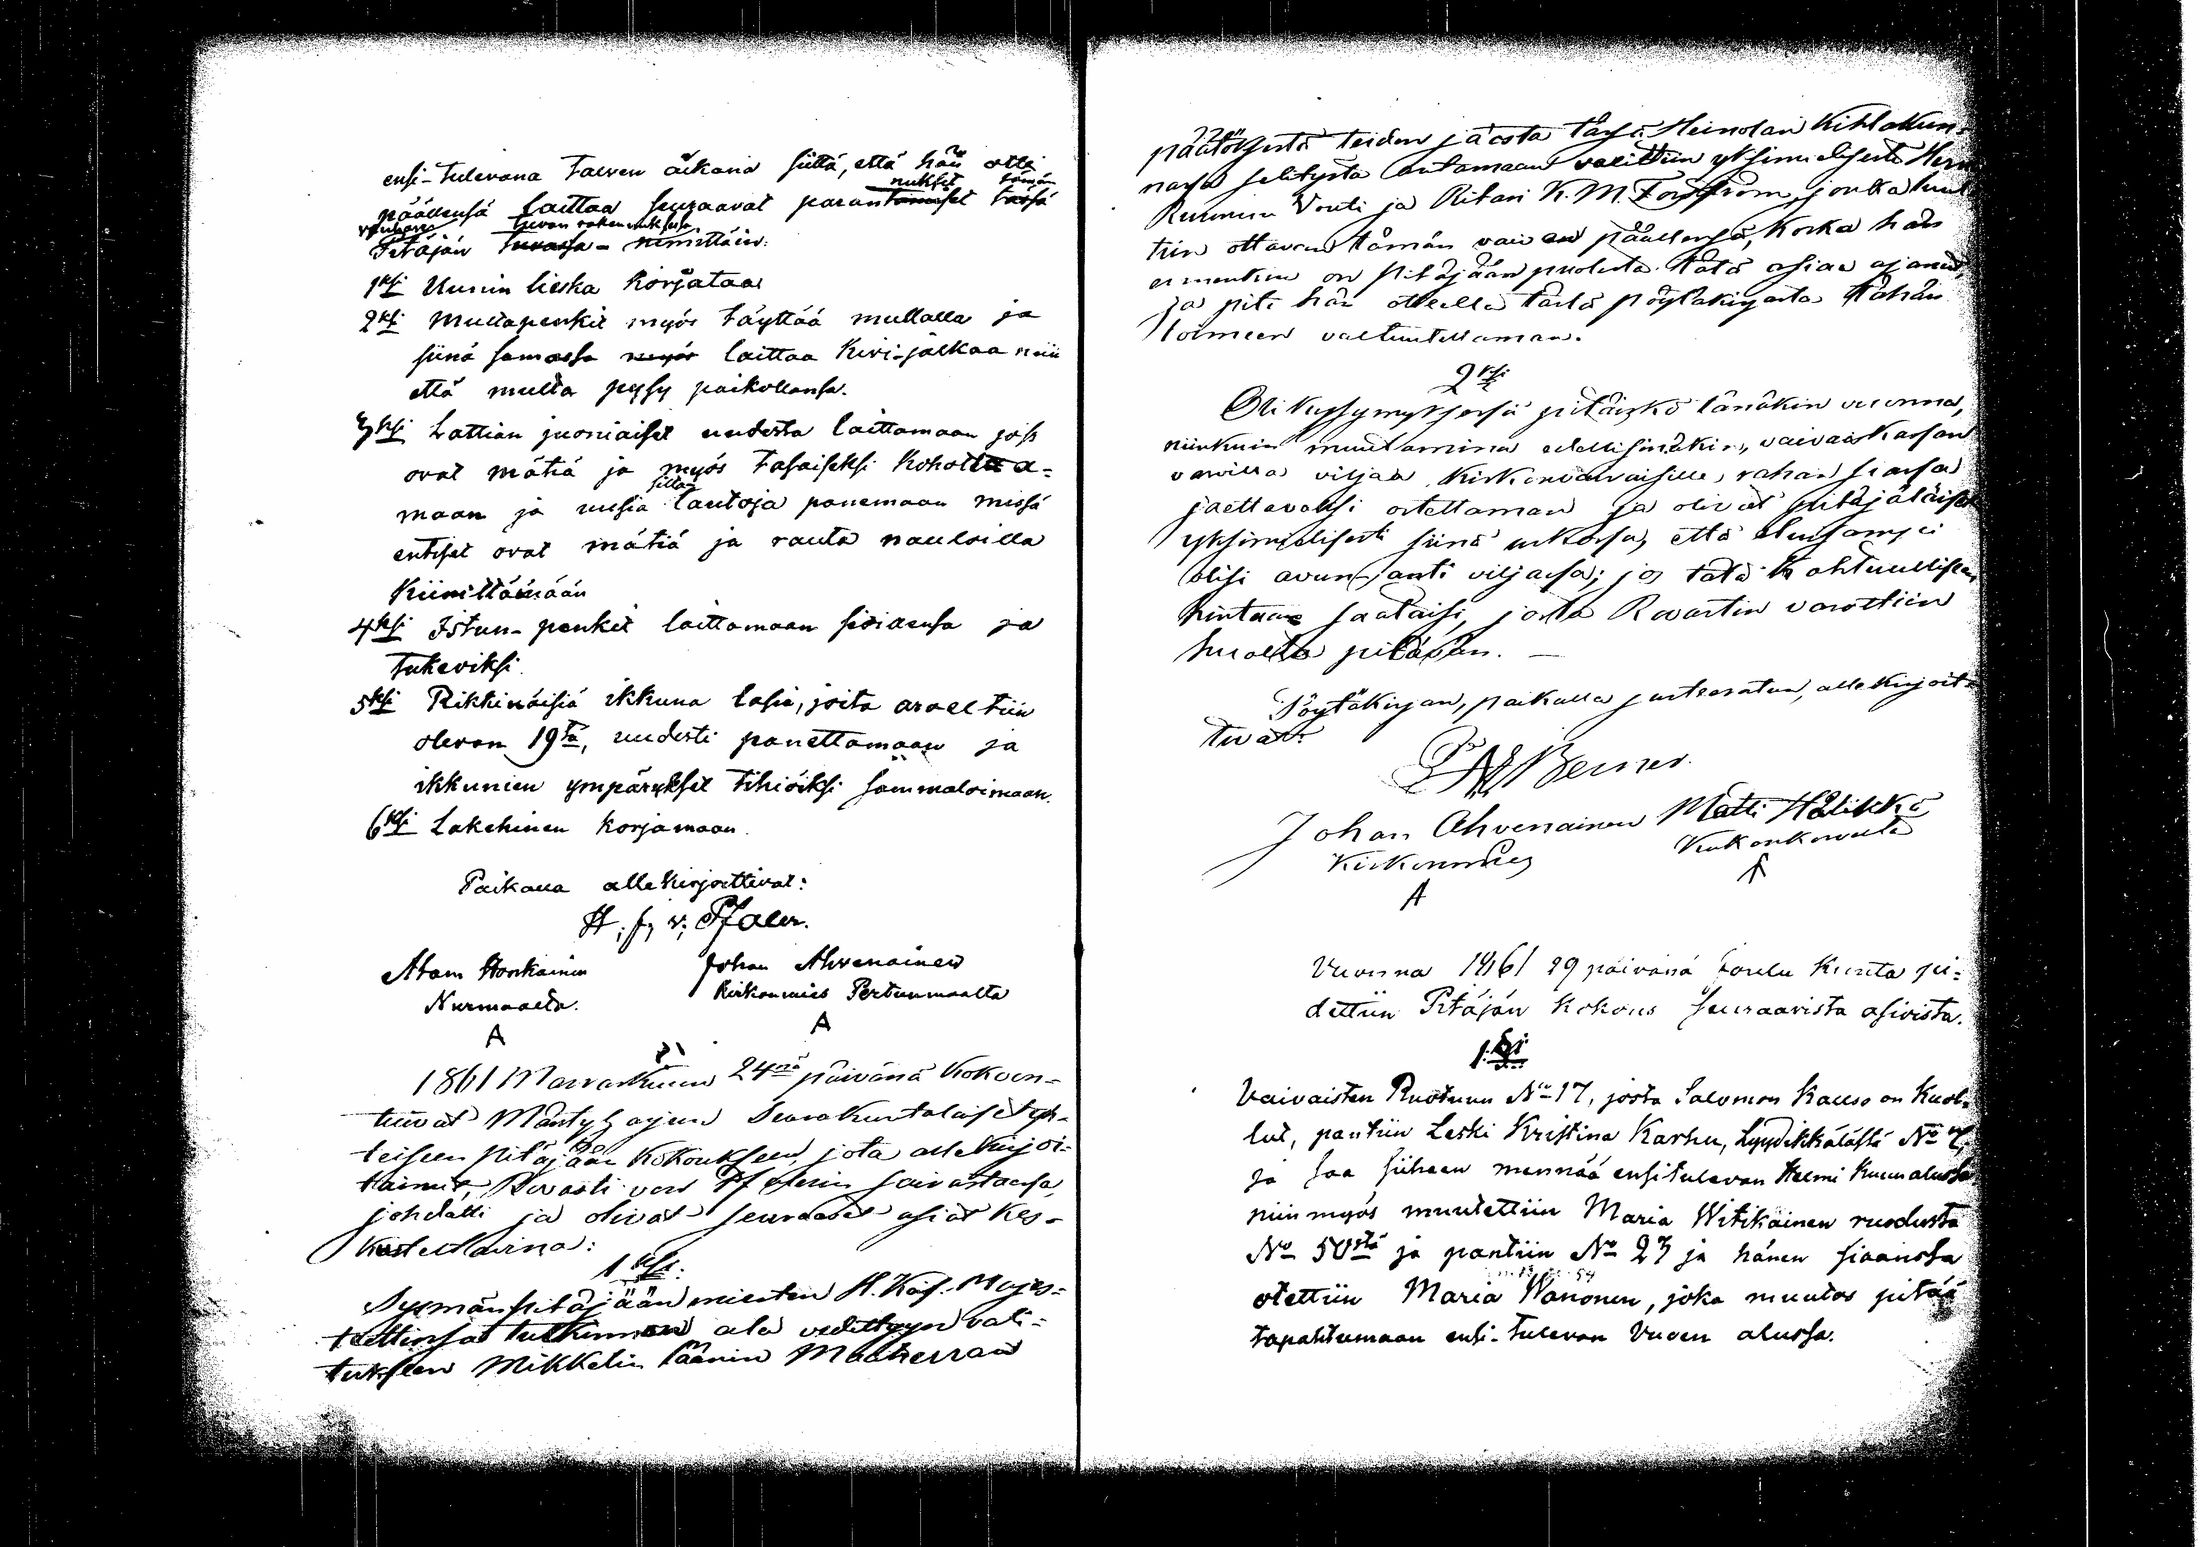 ensi-tulevana talven aikana siitä, että hän otti
päällensä laittaa seuraavat parannukset tämän
vanhan tuvan rakennuksessa
Pitäjän tuvassa - nimittäin:
1ksi Uunin lieska korjataa
2ksi Multapenkit myös täyttää mullalla ja
siinä samassa myös laittaa kivi-jalkaa niin
että multa pysy paikollansa.
3ksi Lattian juoniaiset uudesta laittamaan joss
ovat mätiä ja myös tasaiseksi kohotta-
maan ja uusia silta-lautoja panemaan missä
entiset ovat mätiä ja rauta nauloilla
kiinittämään
4ksi Istun-penkit laittamaan sioillensa ja
tukeviksi.
5ksi Rikkinäisiä ikkuna lasia, joita arveltiin
olevan 19tä, uudesti panettamaan ja
ikkunien ympärykset tihiöksi sammaloimaan.
6ksi Lakehinen korjamaan.
Paikalla allekirjoittivat:
H. J. v. Pfaler.
Atam Honkainen Johan Ahvenainen
Nurmaalta. Kirkonmies Pertunmaalta
A A
1861 Marraskuun 24nä päivänä kokoon-
tuivat Mäntyharjun Seurakuntalaiset yh-
teiseen pitäjään kokoukseen, jota allekirjoi-
tainut, Rovasti von Pfalerin sairastaessa,
johdatti ja olivat seuraavat asiat kes-
kusteltavina:
1ksi.
Sysmän pitäjään miesten H. Keis. Majes-
teettinsä tutkinnon ala vedättyyn vali-
tukseen Mikkelin läänin Maaherran
päätöksestä teiden jäosta täysä Heinolan Kihlakun-
nassa selitystä antamaan valittiin yksimielisesti Herra
Ruunun Vouti ja Ritari K. M. Forsström, jonka luul-
tiin ottavan tämän vaivan päällensä, koska hän
ennenkin on pitäjään puolesta tätä asiaa ajanut,
ja piti hän otteella tästä pöytäkirjasta tähän
toimeen valtuutettaman.
2ksi
Oli kysymyksessä pitäiskö tänäkin vuonna,
niinkuin muutamina edellisinäkin, vaivaiskassan
varoilla viljaa kirkonvaivaisille, rahan siassa
jaettavaksi ostettaman ja olivat pitäjäläiset
yksimielisesti siinä uskossa, että
olisi avun-anti viljassa; jos tätä kohtuullisen
hintaan saataisi, josta Rovastin varottiin
huolta pitävän. —
Pöytäkirjan, paikalla justeeratun, allekirjoit-
tivat:
Berner.
Johan Ahvenainen Matti Hälikkö
Kirkonmies Kuk onkorvelta
A
Vuonna 1861 29 päivänä Joulu Kuuta pi-
dettiin Pitäjän Kokous seuraavista asioista.
1.§i
Vaivaisten Ruotuun No 17, josta Salomon Kauso on kuol-
lut, pantiin Leski Kristina Karhu, Lyydikkälästä No 7,
ja saa siiheen mennää ensitulevan Helmi Kuun alussa
niin myös muutettiin Maria Witikäinen ruodusta
No 50stä ja pantiin No 27 ja hänen siaanssa
otettiin Maria Wanonen, joka muutos pitää
tapahtumaan ensi-tulevan Vuoen alussa.